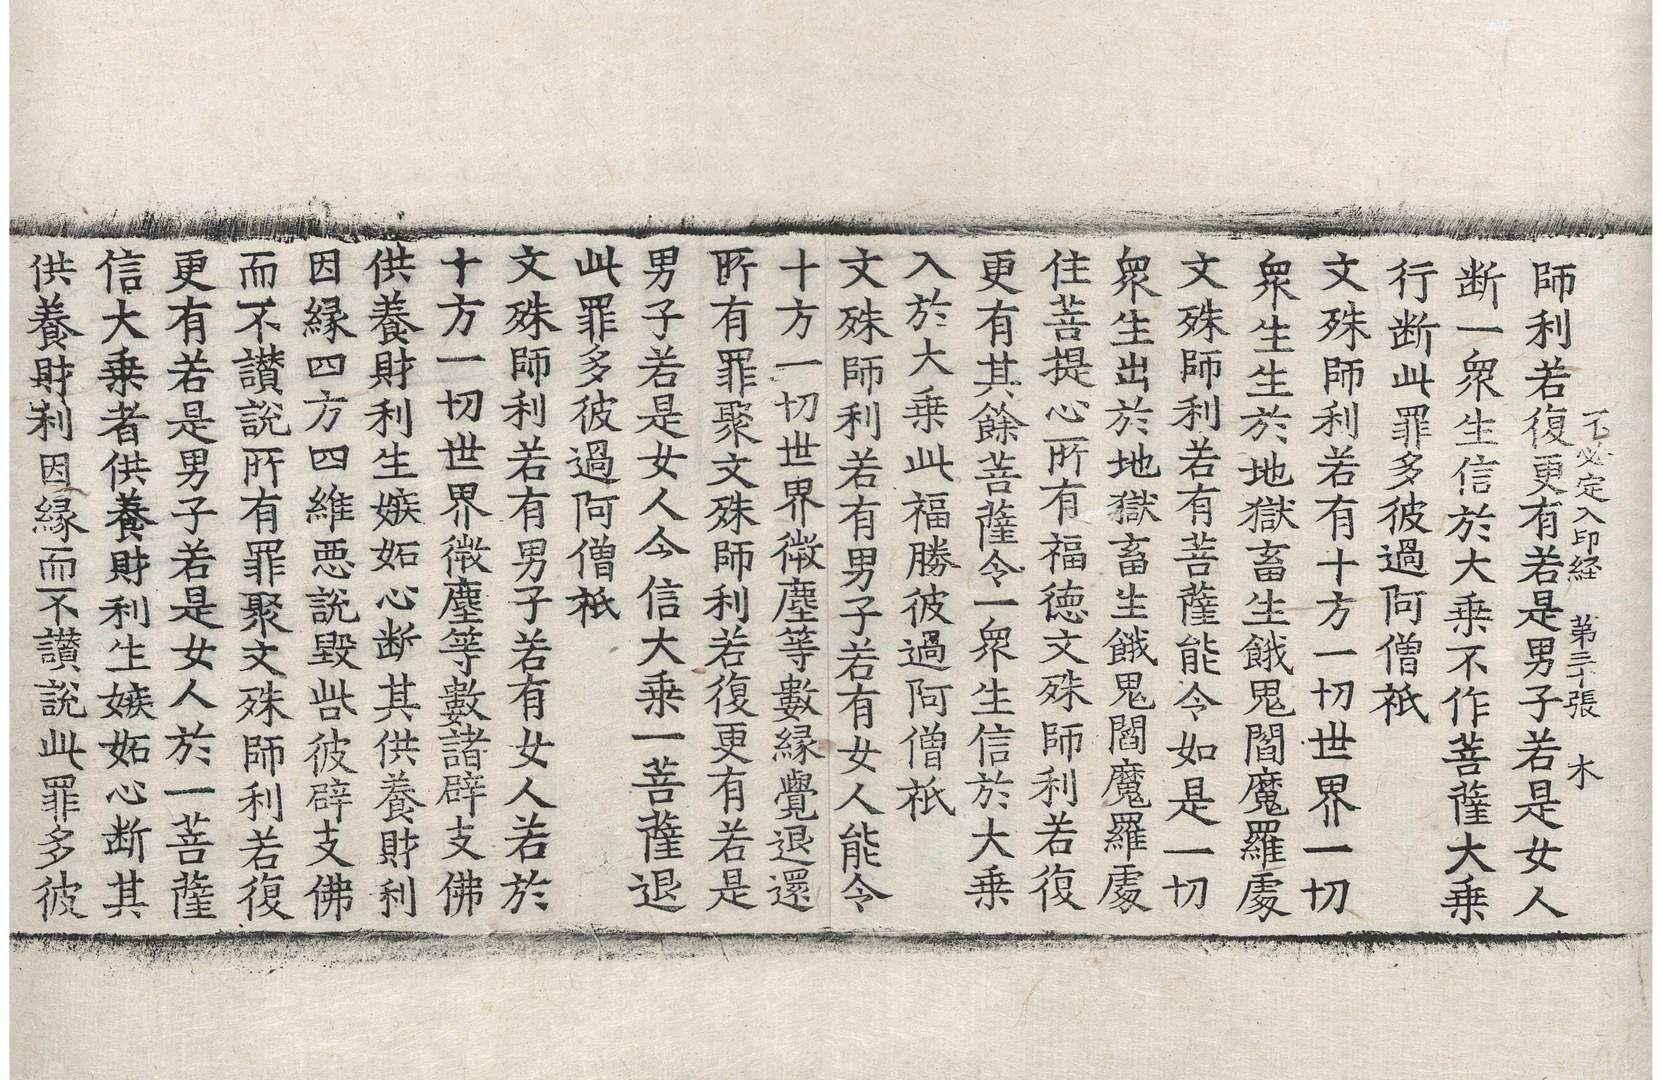 不必定入印経 第二十張 木
師利若復更有若是男子若是女人
断一衆生信於大乗不作菩薩大乗
行断此罪多彼過阿僧祇
文殊師利若有十方一切世界一切
衆生生於地獄畜生餓鬼閻魔羅處
文殊師利若有菩薩能令如是一切
衆生出於地獄畜生餓鬼閻魔羅處
住菩提心所有福徳文殊師利若復
更有其餘菩薩令一衆生信於大乗
入於大乗此福勝彼過阿僧祇
文殊師利若有男子若有女人能令
十方一切世界微塵等數縁覺退還
所有罪聚文殊師利若復更有若是
男子若是女人令信大乗一菩薩退
此罪多彼過阿僧祇
文殊師利若有男子若有女人若於
十方一切世界微塵等數諸辟支佛
供養財利生嫉妬心断其供養財利
因縁四方四維悪説毀呰彼辟支佛
而不讃説所有罪聚文殊師利若復
更有若是男子若是女人於一菩薩
信大乗者供養財利生嫉妬心断其
供養財利因縁而不讃説此罪多彼